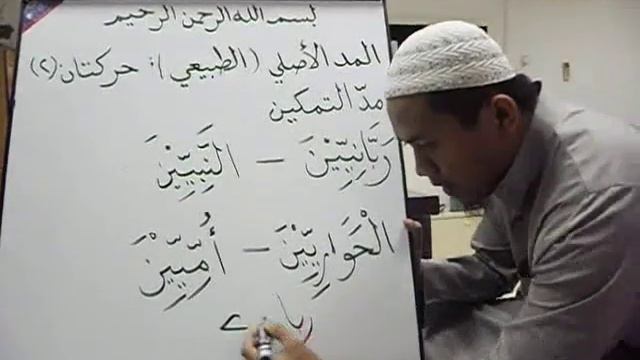 بسم الله الرحمن الرحيم
المد الأصلي (الطبيعي): حركتان (٢)
مدّ التمكين
رَبَّانِيِّيْنَ – النَّبِيِّيْنَ
الْحَوَارِيِّيْنَ – أُمِّيِّيْنَ